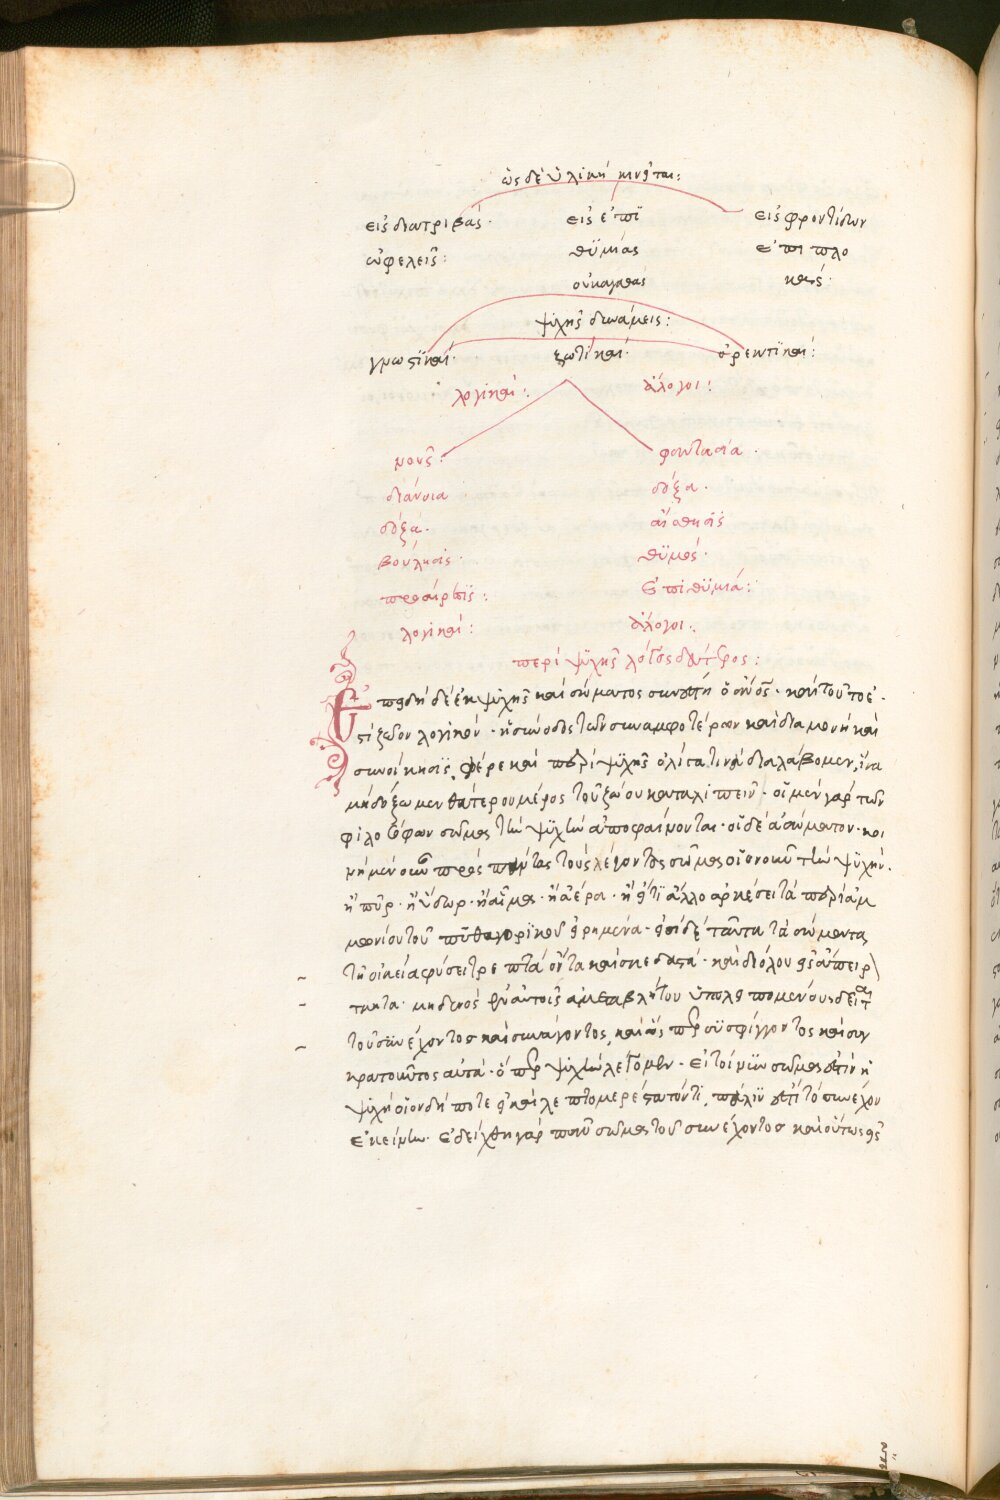 ὡς δὲ ὑλικὴ κινεῖται:
εἰς διατριβάς· εἰς ἐπι εἰς φροντίδων
ὠφελεῖς: θυμίας ἐπιπλο
οὐκ ἀγαθάς κάς·
ψυχῆς δυνάμεις:
γνωστικαί· ζωτικαί· ὀρεκτικαί:
λογικαί: ἄλογοι:
νοῦς· φαντασία·
διάνοια δόξα·
δόξα· αἴσθησις
βούλησις· θυμός·
προαίρεσις: ἐπιθυμία:
λογικαί: ἄλογοι:
περὶ ψυχῆς λόγος δεύτερος:
Ἐπειδὴ δὲ ἐκ ψυχῆς καὶ σώματος συνέστη ὁ ἄνος· καὶ τοῦτο ἐ·
στι ζῶον λογικόν· ἡ σύνοδος τῶν συναμφοτέρων καὶ διαμονὴ καὶ
συνοίκησις, φέρε καὶ περὶ ψυχῆς ὀλίγα τινὰ διαλάβομεν, ἵνα
μὴ δόξωμεν θατέρου μέρος τοῦ ζώου καταλιπεῖν· οἱ μὲν γὰρ τῶν
φιλοσόφων σῶμα τὴν ψυχὴν ἀποφαίνονται· οἱ δὲ ἀσώματον· κοι
νῇ μὲν οὖν πρὸς πάντας τοὺς λέγοντας σῶμα οἱονοῦν τὴν ψυχήν·
ἢ πῦρ· ἢ ὕδωρ· ἢ αἷμα· ἢ ἀέρα· ἢ εἴ τι ἄλλο ἀρκέσει τὰ περὶ ἀμ
μωνίου τοῦ πυθαγορικοῦ εἰρημένα· ἐπεὶ δὲ ταῦτα τὰ σώματα
τῇ οἰκείᾳ φύσει τρεπτὰ ὄντα καὶ σκεδαστά· καὶ διόλου εἰς ἄπειρ
τμητα· μηδενὸς ἐν αὐτοῖς ἀμεταβλήτου ὑπολειπομένου δεῖται
τοῦ συνέχοντος καὶ συνάγοντος, καὶ ὥσπερ συσφίγγοντος καὶ συγ
κρατοῦντος αὐτά· ὅπερ ψυχὴν λέγομεν· εἰ τοίνυν σῶμα ἐστὶν ἡ
ψυχὴ οἱονδήποτε εἰ καὶ λεπτομερέστατόν τι, πάλιν ἐστὶ τὸ συνέχον
ἐκείνην· ἐδείχθη γὰρ πᾶν σῶμα τοῦ συνέχοντος καὶ οὕτως εἰς